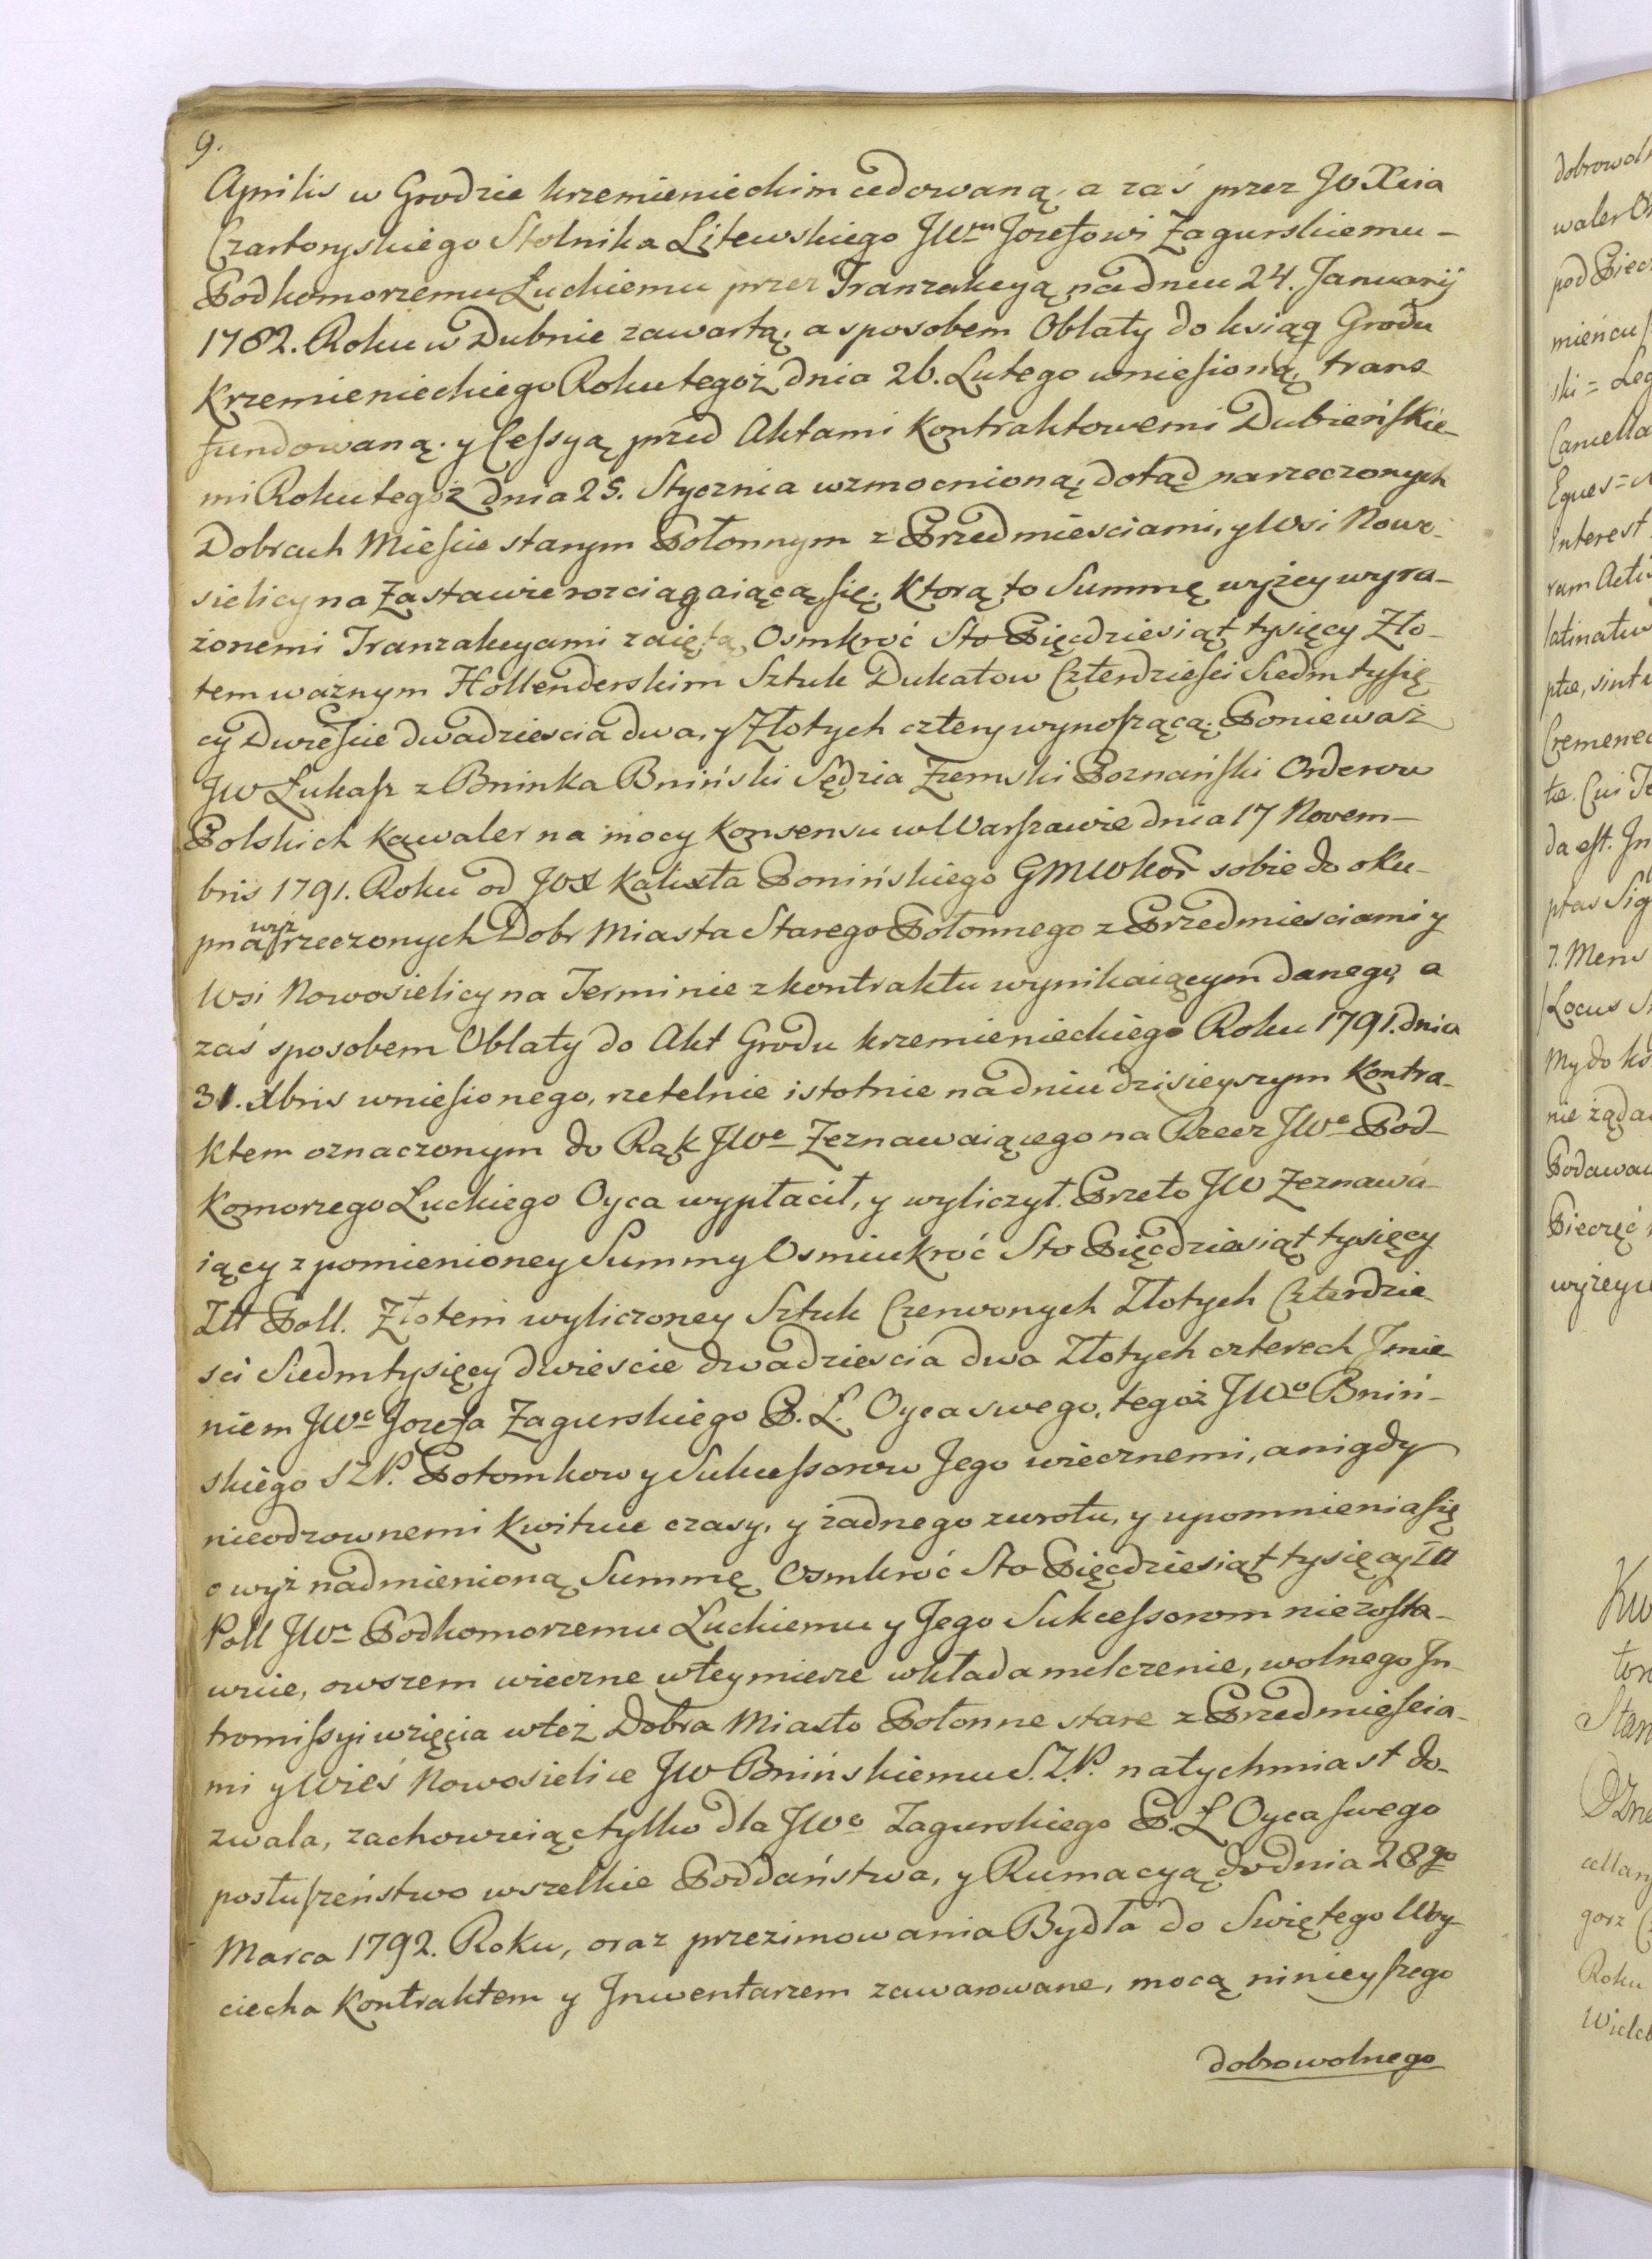 9.
Aprilis w Grodzie krzemienieckim cedowaną, a zaś przez JO Xcia
Czartoryskiego Stolnika Litewskiego JWmu Jozefowi Zagurskiemu –
Podkomorzemu Luckiemu przez Tranzakcyą na dniu 24. Januarij
1782. Roku w Dubnie zawartą, a sposobem Oblaty do ksiąg Grodu
Krzemienieckiego Roku tegoż dnia 26. Lutego wniesioną, trans
fundowaną. y Cessyą przed Aktami Kontraktowemi Dubieńskie-
mi Roku tegoż dnia 25. Stycznia wzmocnioną, dotąd na rzeczonych
Dobrach Mieście starym Połonnym z Przedmiesciami, y Wsi Nowo-
sielicy na Zastawie rozciągaiącą się. Ktorą to Summę wyżey wyra-
żonemi Tranzakcyami zaiętą Osmkroć Sto Pięcdziesiąt tysięcy Zło-
tem ważnym Hollenderskim Sztuk Dukatow Czterdziesci Siedm tysię
cy Dwiescie dwadziescia dwa, y Złotych cztery wynoszącą. Ponieważ
JW Łukasz z Bninka Bniński Sędzia Ziemski Poznański Orderow
Polskich Kawaler na mocy Konsensu w Warszawie dnia 17 Novem-
bris 1791. Roku od JOX Kalixta Ponińskiego GMWKoř sobie do oku-
pna wyż rzeczonych Dobr Miasta Starego Połonnego z Przedmiesciami y
Wsi Nowosielicy na Terminie z kontraktu wynikaiącym danego, a
zaś sposobem Oblaty do Akt Grodu krzemienieckiego Roku 1791. dnia
31. Xbris wniesionego, rzetelnie istotnie na dniu dzisieyszym Kontra-
ktem oznaczonym do Rąk JWo Zeznawaiącego na Rzecz JWo Pod-
Komorzego Luckiego Oyca wypłacił, y wyliczył. Przeto JW Zeznawa-
iący z pomienioney Summy Osmiukroć Sto Pięcdziesiąt tysięcy
Złt Poll. Złotem wyliczoney Sztuk Czerwonych Złotych Czterdzie-
sci Siedm tysięcy dwiescie dwadziescia dwa Złotych czterech Jmie-
niem JWo Jozefa Zagurskiego P. L. Oyca swego, tegoż JWo Bniń-
skiego SZP. Potomkow y Sukcessorow Jego wiecznemi, a nigdy
nieodzownemi Kwituie czasy, y żadnego zwrotu, y upomnienia się
o wyż nadmienioną Summę Osmkroć Sto Pięcdziesiąt tysięcy Złt
Poll JWu Podkomorzemu Luckiemu y Jego Sukcessorom niezosta-
wuie, owszem wieczne w tey mierze wkłada milczenie, wolnego In-
tromissyi wzięcia w też Dobra Miasto Połonne stare z Przedmiescia-
mi y Wieś Nowosielice JW Bnińskiemu S.Z.P. natychmiast do-
zwala, zachowuiąc tylko dla JWo Zagurskiego P. L Oyca swego
posłuszeństwo wszelkie Poddaństwa, y Rumacyą do dnia 28go
Marca 1792. Roku, oraz przezimowania Bydła do Swiętego Woy-
ciecha Kontraktem y Inwentarzem zawarowane, mocą ninieyszego
dobrowolnego